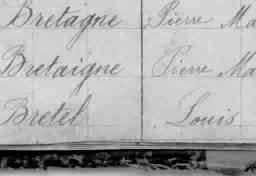 Bretagne Pierre Ma
Bretaigne Pierre Ma
Bretel Louis